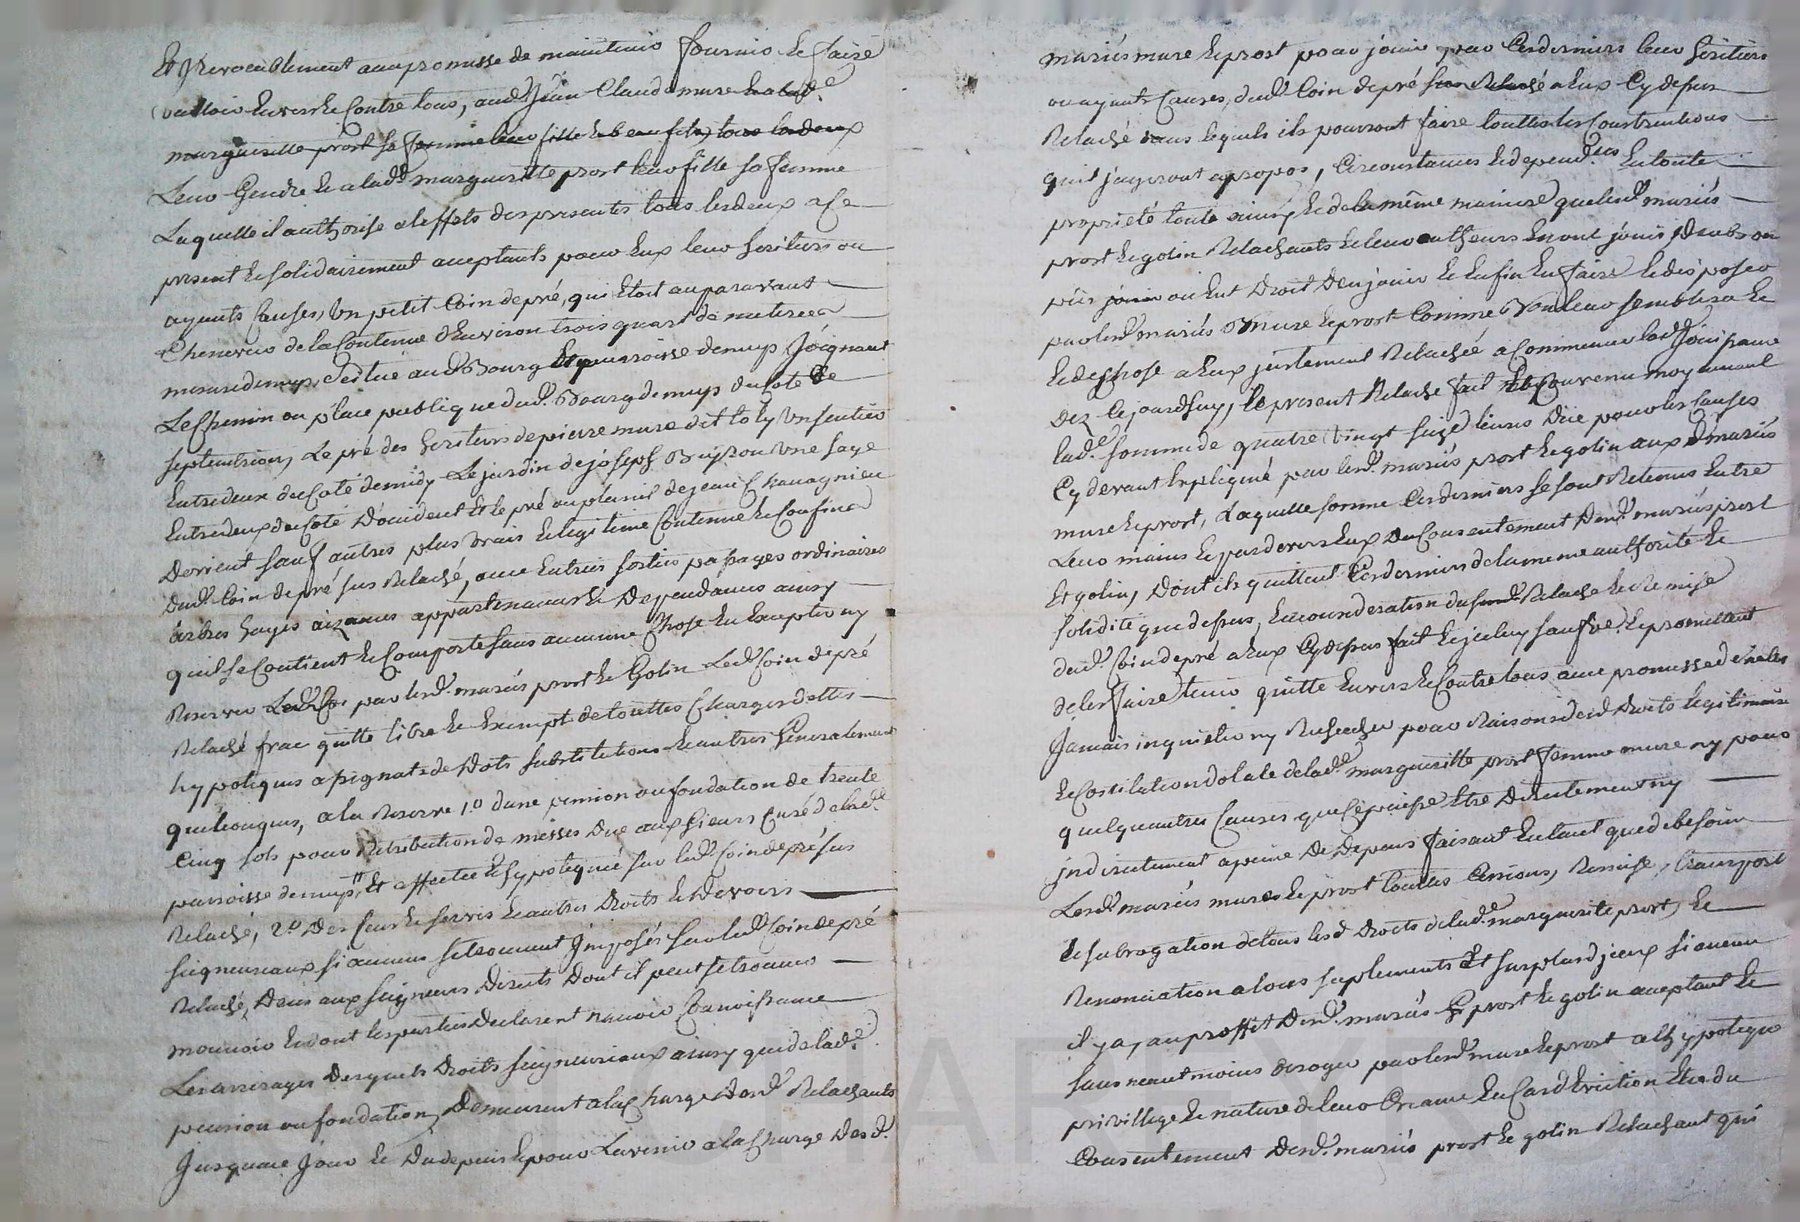 Et Irevocablement avec promesse de maintenir fournir et faire
valloir envers et contre tous, aud.t Jean Claude mure et a lad.e
margueritte prost sa femme leur fille et beau fils, tous les deux
Leur Gendre et a lad.e margueritte prost leur fille sa femme
Laquelle il authorise a leffets des presentes tous les deux a ce
present et solidairement aceptants pour Eux leur heritiers ou
ayants Causes, Un petit Coin de pré, qui Etoit auparavant
Chenevier de la Contenue d'Environ trois quart de meteree
mesure demeys Scitué aud.t Bourg et parroisse demeys Joignant
Le Chemin ou place publique dud.t Bourg demeys du Coté de
septentrion, Le pré des heritiers de pierre mure dit toly Un sentier
Entredeux du Coté de midy Le jardin de joseph Buisson Une haye
Entredeux du Coté D'occident Et le pré ou planil de jean Chavagnieu
Dorient sauf autres plus Vrais et legitime Contenue et Confins
dud.t Coin de pré sus Relaché, avec Entrées sorties passages ordinaires
arbres hayes aizances appartenances et Dependances ainsy
quil se Contient et Comporte sans aucunne Chose En Excepter ny
Reserver Led.t Co par lesd.t mariés prost et Golin Led.t Coin de pré
Relaché franc quitte libre et Exempt de touttes Charges dettes
hypoteques apignats de Dots substitutions et autres Generalement
quelconques, a la Reserve 1.o d'une pension ou fondation de trente
Cinq sols pour Retribution de messes Due aux sieurs Curé de lad.e
parroisse demeys Et affectée et hypotequée sur led.t Coin de pré sus
Relaché, 2.o Des Cens et servis et autres droits et Devoirs
seigneuriaux si aucuns se trouvent Imposés sur led.t Coin de pré
Relaché, Deus aux seigneurs Directs Dont il peut se trouver
mouvoir Et dont les parties declarent n'avoir Conoissance
Les arrerages Desquels Droits seigneuriaux ainsy que de lad.e
pension ou fondation, Demeurent a la Charge desd.t Relachants
Jusqu'a ce Jour Et Du depuis et pour L'avenir a la Charge desd.t
mariés mure et prost pour jouir par Ces derniers leur heritiers
ou ayants Causes, dud.t Coin de pré sus Relaché a Eux Cy dessus
Relaché dans lequels ils pourront faire touttes les Constructions
quil jugeront apropos, Circonstances et depend.ces En toute
proprieté toute ainsy et de la même maniere que lesd.t mariés
prost et golin Relachants et leur autheurs En ont jouis, Deub ou
pûs jouir ou Eut Droit d'en jouir Et Enfin En faire et disposer
par lesd.t mariés mure et prost Comme Bon leur semblera Et
de Chose a Eux justement Relachée a Commencer lad.e Jouissance
Dez Cejourdhuy, le present Relache fait et Convenu moyennant
lad.e somme de quatre Vingt seize livres Due pour les Causes
Cy devant Expliqué par lesd.t mariés prost et golin aux d. mariés
mure et prost, Laquelle somme Ces derniers se sont Retenus Entre
Leur mains et pardevers Eux Du Consentement desd.t mariés prost
Et golin, Dont ils quittent Ces derniers de la meme authorité Et
solidité que dessus, En consideration dususd.t Relache Et Remise
dud.t Coin de pré a Eux Cy dessus fait Et jceluy sauf ve.d. Et promettent
de les faire tenir quitte Envers Et Contre tous avec promesse de ne les
Jamais inquieter ny Rechercher pour Raisons desd. Droits legitimaire
Et Constitution dotale de lad.e margueritte prost femme mure ny pour
quelqu'autres Causes que Ce puisse Etre Directement ny
jndirectement apeine De Depens faisant En tant que de besoin
Lesd.t mariés mure et prost touttes Cessions, Remise, transport
Et subrogation de tous lesd. Droits de lad.e marguerite prost, Et
Renonciation a tous suplements Et surplus d'jceux si aucun
il y a, au proffit Desd.t mariés prost et golin aceptant Et
sans neantmoins deroger par lesd.t mure et prost a lhypoteque
privillege et nature de leur Creance En Cas d'Eviction Et du
Consentement Desd.t mariés prost et golin Relachant qui